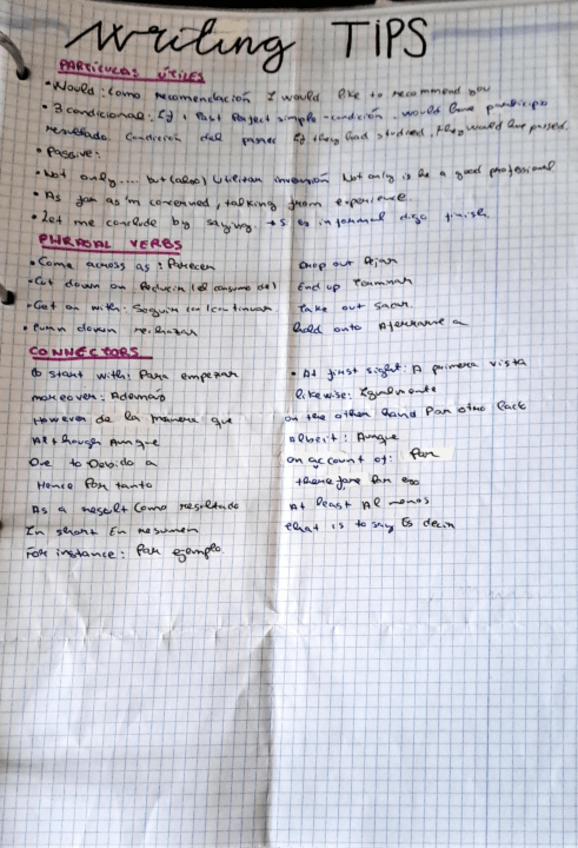 Writing TIPS
PARTÍCULAS ÚTILES
• Would: Como recomendación I would like to recommend you
• 3 condicional: If + Past Perfect simple - condición. would have participio
resultado. Condición del If they had studied, they would have passed.
• Passive:
• Not only.... but (also) Utilizar inversión Not only is he a good professional
• As far as I'm concerned, talking from experience.
• Let me conclude by saying. → S es informal digo finish.
PHRASAL VERBS
• Come across as: Parecer
• Cut down on Reducir (el consumo de)
• Get on with: Seguir con/continuar
• turn down rechazar
Drop out Dejar
End up Terminar
Take out Sacar
hold onto Aferrarse a
CONNECTORS
to start with: Para empezar
moreover: Además
However de la manera que
Although Aunque
Due to Debido a
Hence Por tanto
As a result Como resultado
In short En resumen
For instance: Por ejemplo.
• At first sight: A primera vista
likewise: Igualmente
on the other hand Por otro lado
Albeit: Aunque
on account of: Por
therefore Por eso
At least Al menos
that is to say Es decir